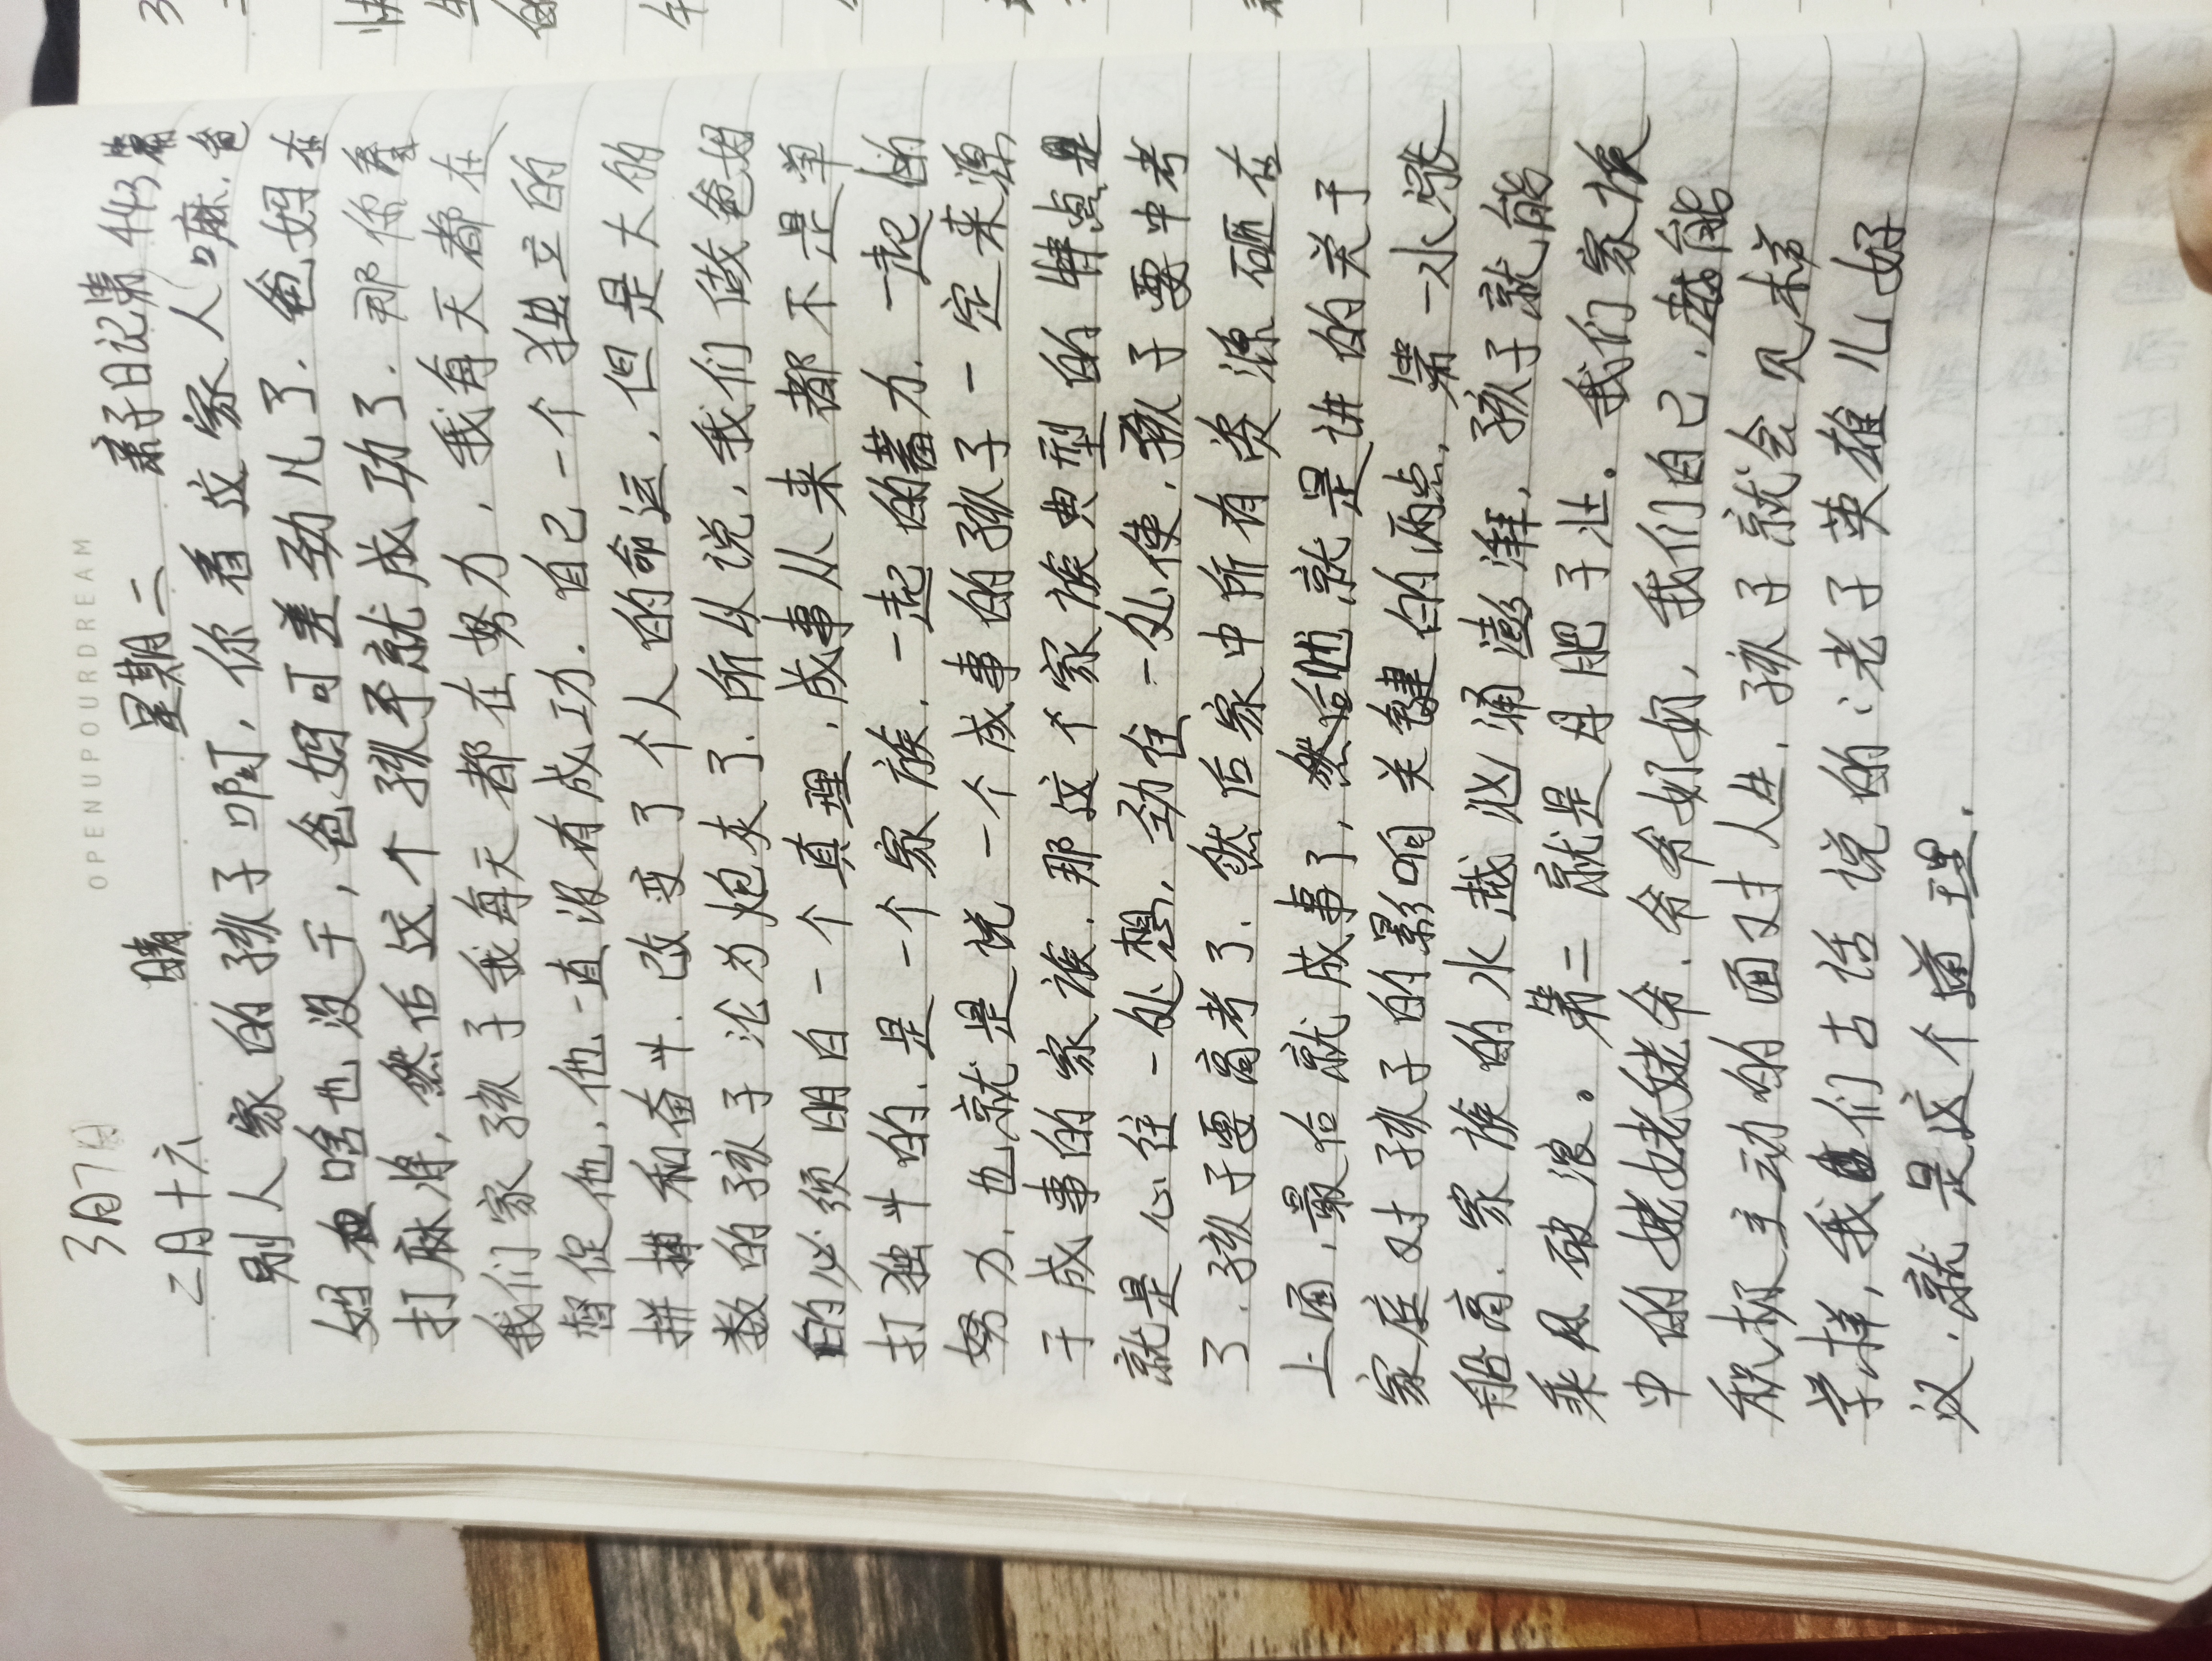 OPENUPOURDREAM
3月7日
二月十六 晴 星期二 亲子日记第443篇
别人家的孩子啊，你看这家人嘛.爸
妈啥也没干，爸妈可差劲儿了.爸妈在
打麻将，然后这个孩子就成功了.那你看
我们家孩子我每天都在努力，我每天都在
督促他，他一直没有成功.自己一个独立的
拼搏和奋斗.改变了个人的命运，但是大的
数的孩子沦为炮灰了.所以说，我们做爸妈
的必须明白一个真理，成事从来都不是单
打独斗的.是一个家族.一起的蓄力.一起的
努力.也就是说一个成事的孩子一定来源
于成事的家族.那这个家族典型的特点是
就是心往一处想，劲往一处使.孩子要中考
了.孩子要高考了.然后家中所有资源砸在
上面.最后就成事了，然后就是讲的关于
家庭对孩子的影响关键的两点，第一水涨
船高.家族的水越汹涌澎湃，孩子就能
乘风破浪。第二就是母肥子壮。我们家族
中的姥姥姥爷.爷爷奶奶，我们自己.越能
积极主动的面对人生.孩子就会见样
学样，我们古话说的：老子英雄儿好
汉.就是这个道理.